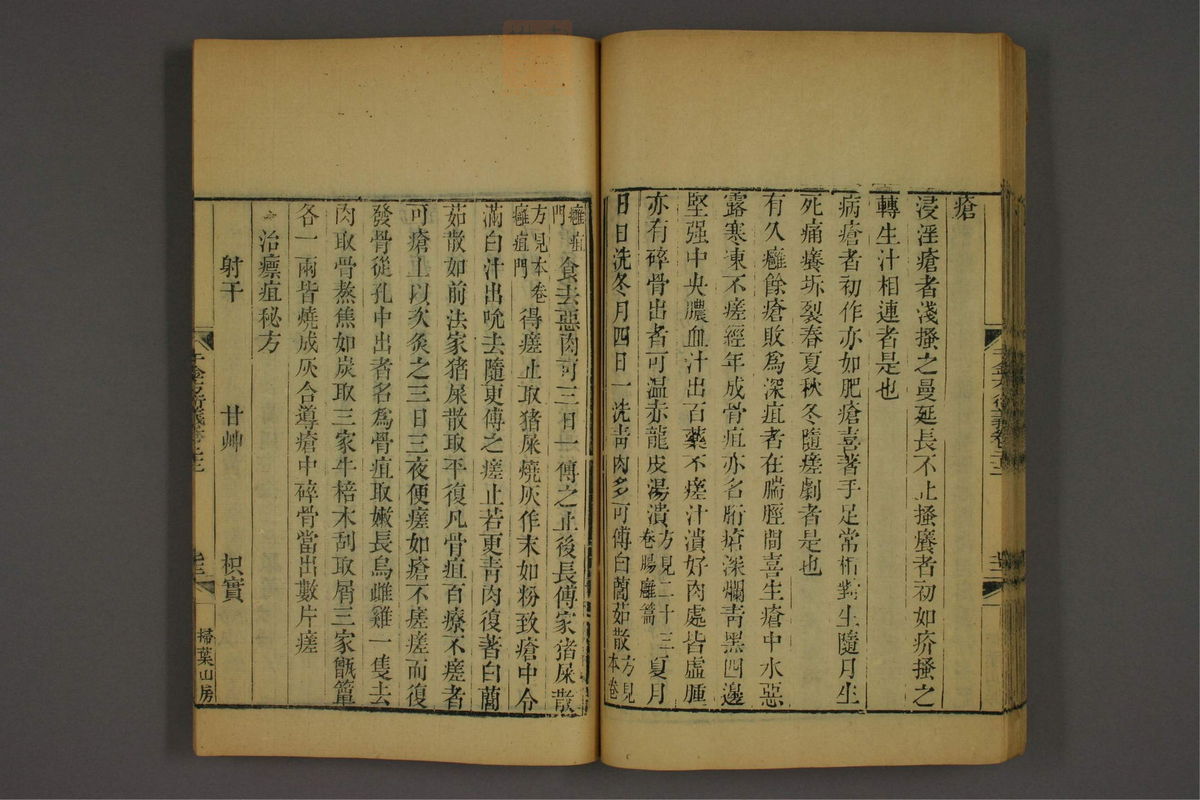 瘡
浸淫瘡者淺搔之曼延長不止搔癢者初如疥搔之
轉生汁相連者是也
病瘡者初作亦如肥瘡喜著手足常相對生隨月生
死痛癢坼裂春夏秋冬隨瘥劇者是也
有久癰餘瘡敗為深疽者在腨脛間喜生瘡中水惡
露寒凍不瘥經年成骨疽亦名胻瘡深爛青黑四邊
堅强中央膿血汁出百藥不瘥汁潰好肉處皆虛腫
亦有碎骨出者可温赤龍皮湯漬方見二十三卷腸癰篇夏月
日日洗冬月四日一洗青肉多可傅白䕡茹散方見本卷
癰疽門食去惡肉可三日一傅之止後長傅家猪屎散
方見本卷癰疽門得瘥止取猪屎燒灰作末如粉致瘡中令
滿白汁出吮去隨更傅之瘥止若更青肉復著白䕡
茹散如前法家猪屎散取平復凡骨疽百療不瘥者
可瘡上以次灸之三日三夜便瘥如瘡不瘥瘥而復
發骨從孔中出者名為骨疽取嫩長烏雌雞一隻去
肉取骨熬焦如炭取三家牛棓木刮取屑三家甑箄
各一兩皆燒成灰合導瘡中碎骨當出數片瘥
治瘭疽秘方
射干 甘艸 枳實
千金方衍義卷二十二
掃葉山房